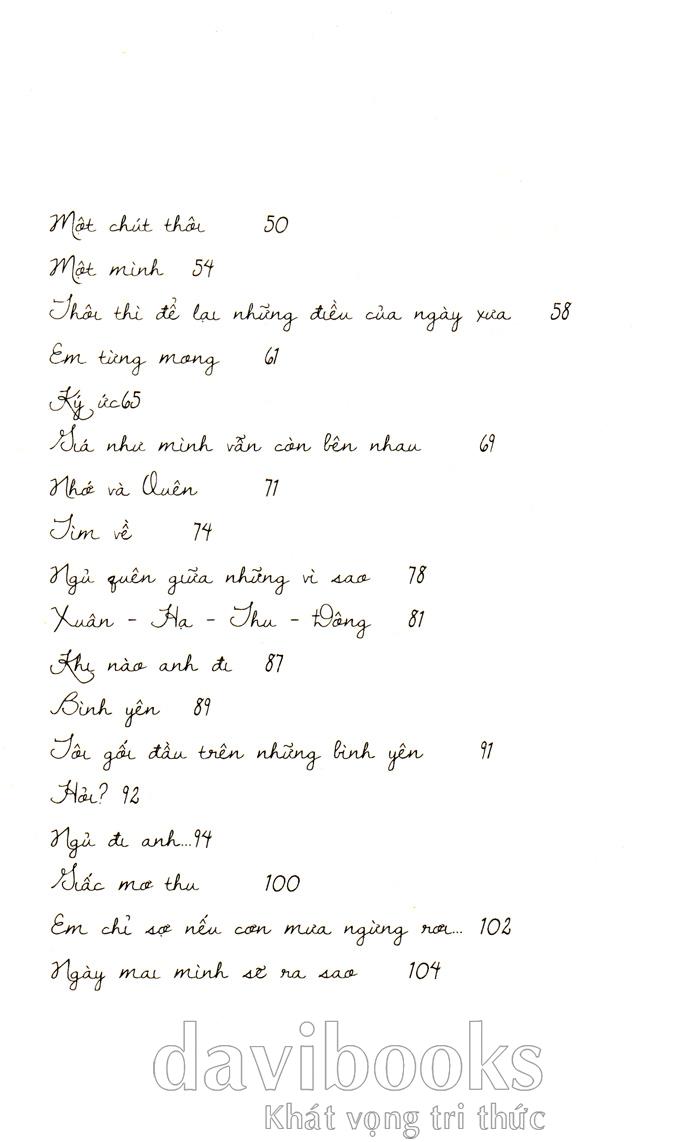 Một chút thôi 50
Một mình 54
Thôi thì để lại những điều của ngày xưa 58
Em từng mong 61
Ký ức65
Giá như mình vẫn còn bên nhau 69
Nhớ và Quên 71
Tìm về 74
Ngủ quên giữa những vì sao 78
Xuân - Hạ - Thu - Đông 81
Khi nào anh đi 87
Bình yên 89
Tôi gối đầu trên những bình yên 91
Hỏi? 92
Ngủ đi anh...94
Giấc mơ thu 100
Em chỉ sợ nếu cơn mưa ngừng rơi... 102
Ngày mai mình sẽ ra sao 104
davibooks
Khát vọng tri thức